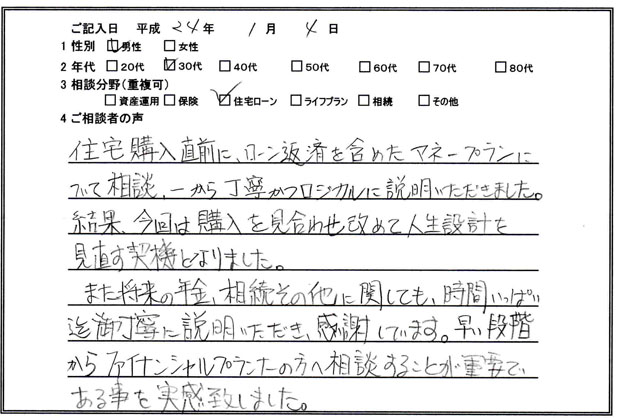 ご記入日 平成 24 年 1 月 4 日
1 性別 ☑男性 □女性
2 年代 □20代 ☑30代 □40代 □50代 □60代 □70代 □80代
3 相談分野(重複可)
□資産運用 □保険 ☑住宅ローン □ライフプラン □相続 □その他
4 ご相談者の声
住宅購入直前に、ローン返済を含めたマネープランに
ついて相談、一から丁寧かつロジカルに説明いただきました。
結果、今回は購入を見合わせ改めて人生設計を
見直す契機となりました。
また将来の年金、相続その他に関しても、時間いっぱい
迄御丁寧に説明いただき、感謝しています。早い段階
からファイナンシャルプランナーの方へ相談することが重要で
ある事を実感致しました。